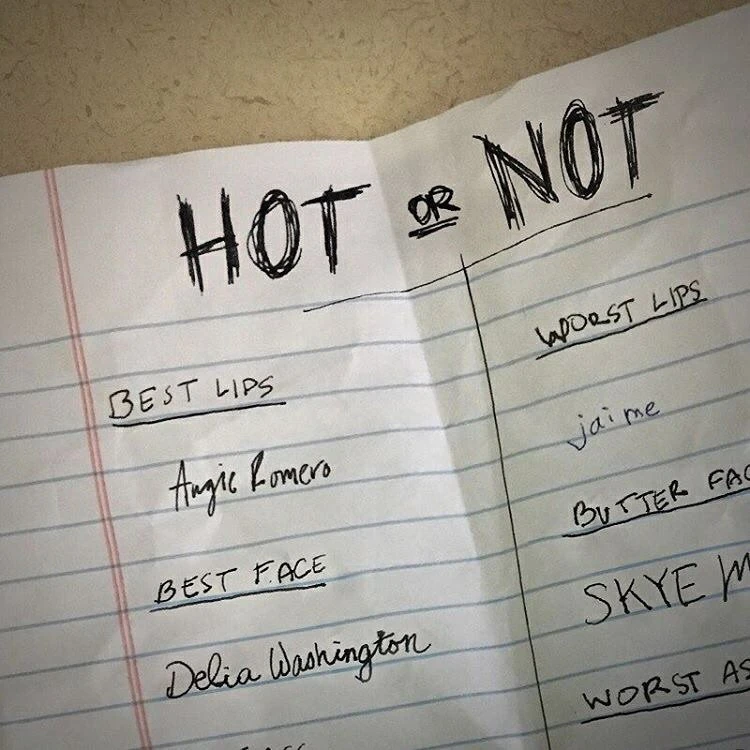 HOT OR NOT
BEST LIPS
Angie Romero
BEST FACE
Delia Washington
WORST LIPS
jaime
BUTTER FAC
SKYE M
WORST AS